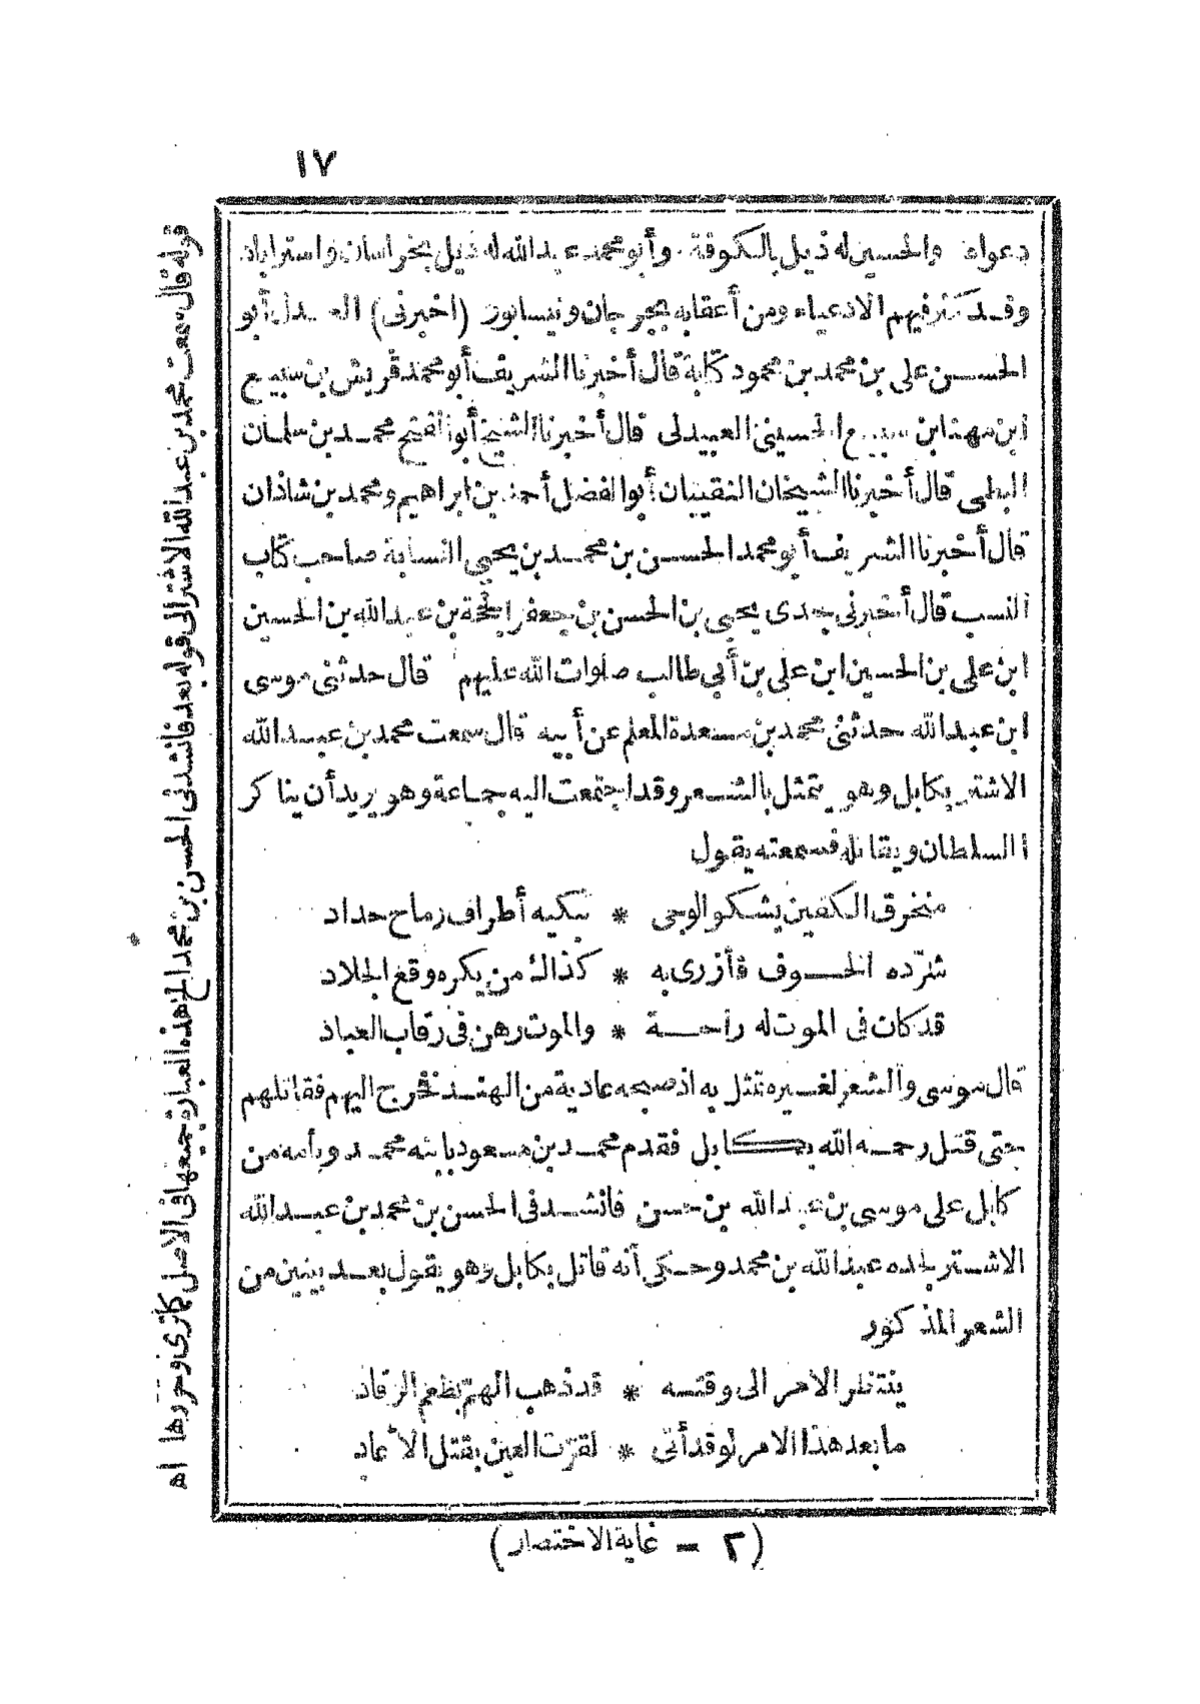 ١٧
دعواه والحسين له ذيل بالكوفة وأبو محمد عبد الله له ذيل بخراسان واستراباد
وقد كثر فيهم الادعياء ومن أعقابه بجرجان ونيسابور (اخبرنى) العدل أبو
الحسن على بن محمد بن محمود كتابة قال أخبرنا الشريف أبو محمد قريش بن سبيع
ابن مهنا ابن سبيع الحسينى العبيدلى قال أخبرنا الشيخ أبو الفتح محمد بن سلمان
البطى قال أخبرنا الشيخان النقيبان أبو الفضل أحمد بن ابراهيم ومحمد بن شاذان
قال أخبرنا الشريف أبو محمد الحسن بن محمد بن يحيى النسابة صاحب كتاب
النسب قال أخبرنى جدى يحيى بن الحسن بن جعفر الحجة بن عبد الله بن الحسين
ابن على بن الحسين ابن على بن أبي طالب صلوات الله عليهم قال حدثنى موسى
ابن عبد الله حدثنى محمد بن مسعدة المعلم عن أبيه قال سمعت محمد بن عبد الله
الاشتر بكابل وهو يتمثل بالشعر وقد اجتمعت اليه جماعة وهو يريد أن يناكر
السلطان ويقاتله فسمعته يقول
منخرق الكفين يشكو الوجى * تبكيه أطراف رماح حداد
شرّده الخوف فأزرى به * كذاك من يكره وقع الجلاد
قد كان فى الموت له راحة * والموت رهن فى رقاب العباد
قال موسى والشعر لغيره تمثل به اذ صبحه عادية من الهند فخرج اليهم فقاتلهم
حتى قتل رحمه الله بكابل فقدم محمد بن مسعود بابنه محمد وبأمه من
كابل على موسى بن عبد الله بن حسن فانشدنى الحسن بن محمد بن عبد الله
الاشتر لجده عبد الله بن محمد وحكى أنه قاتل بكابل وهو يقول بعد بيتين من
الشعر المذكور
ينتظر الامر الى وقته * قد ذهب الهمّ بطعم الرقاد
ما بعد هذا الامر لو قد أتى * لقرّت العين بقتل الأعاد
(٢ – غاية الاختصار)
قوله قال سمعت محمد بن عبد الله الاشتر الى قوله بعد فأنشدنى الحسن بن محمد الخ هذه العبارة جميعها فى الاصل كما ترى وحررها اه